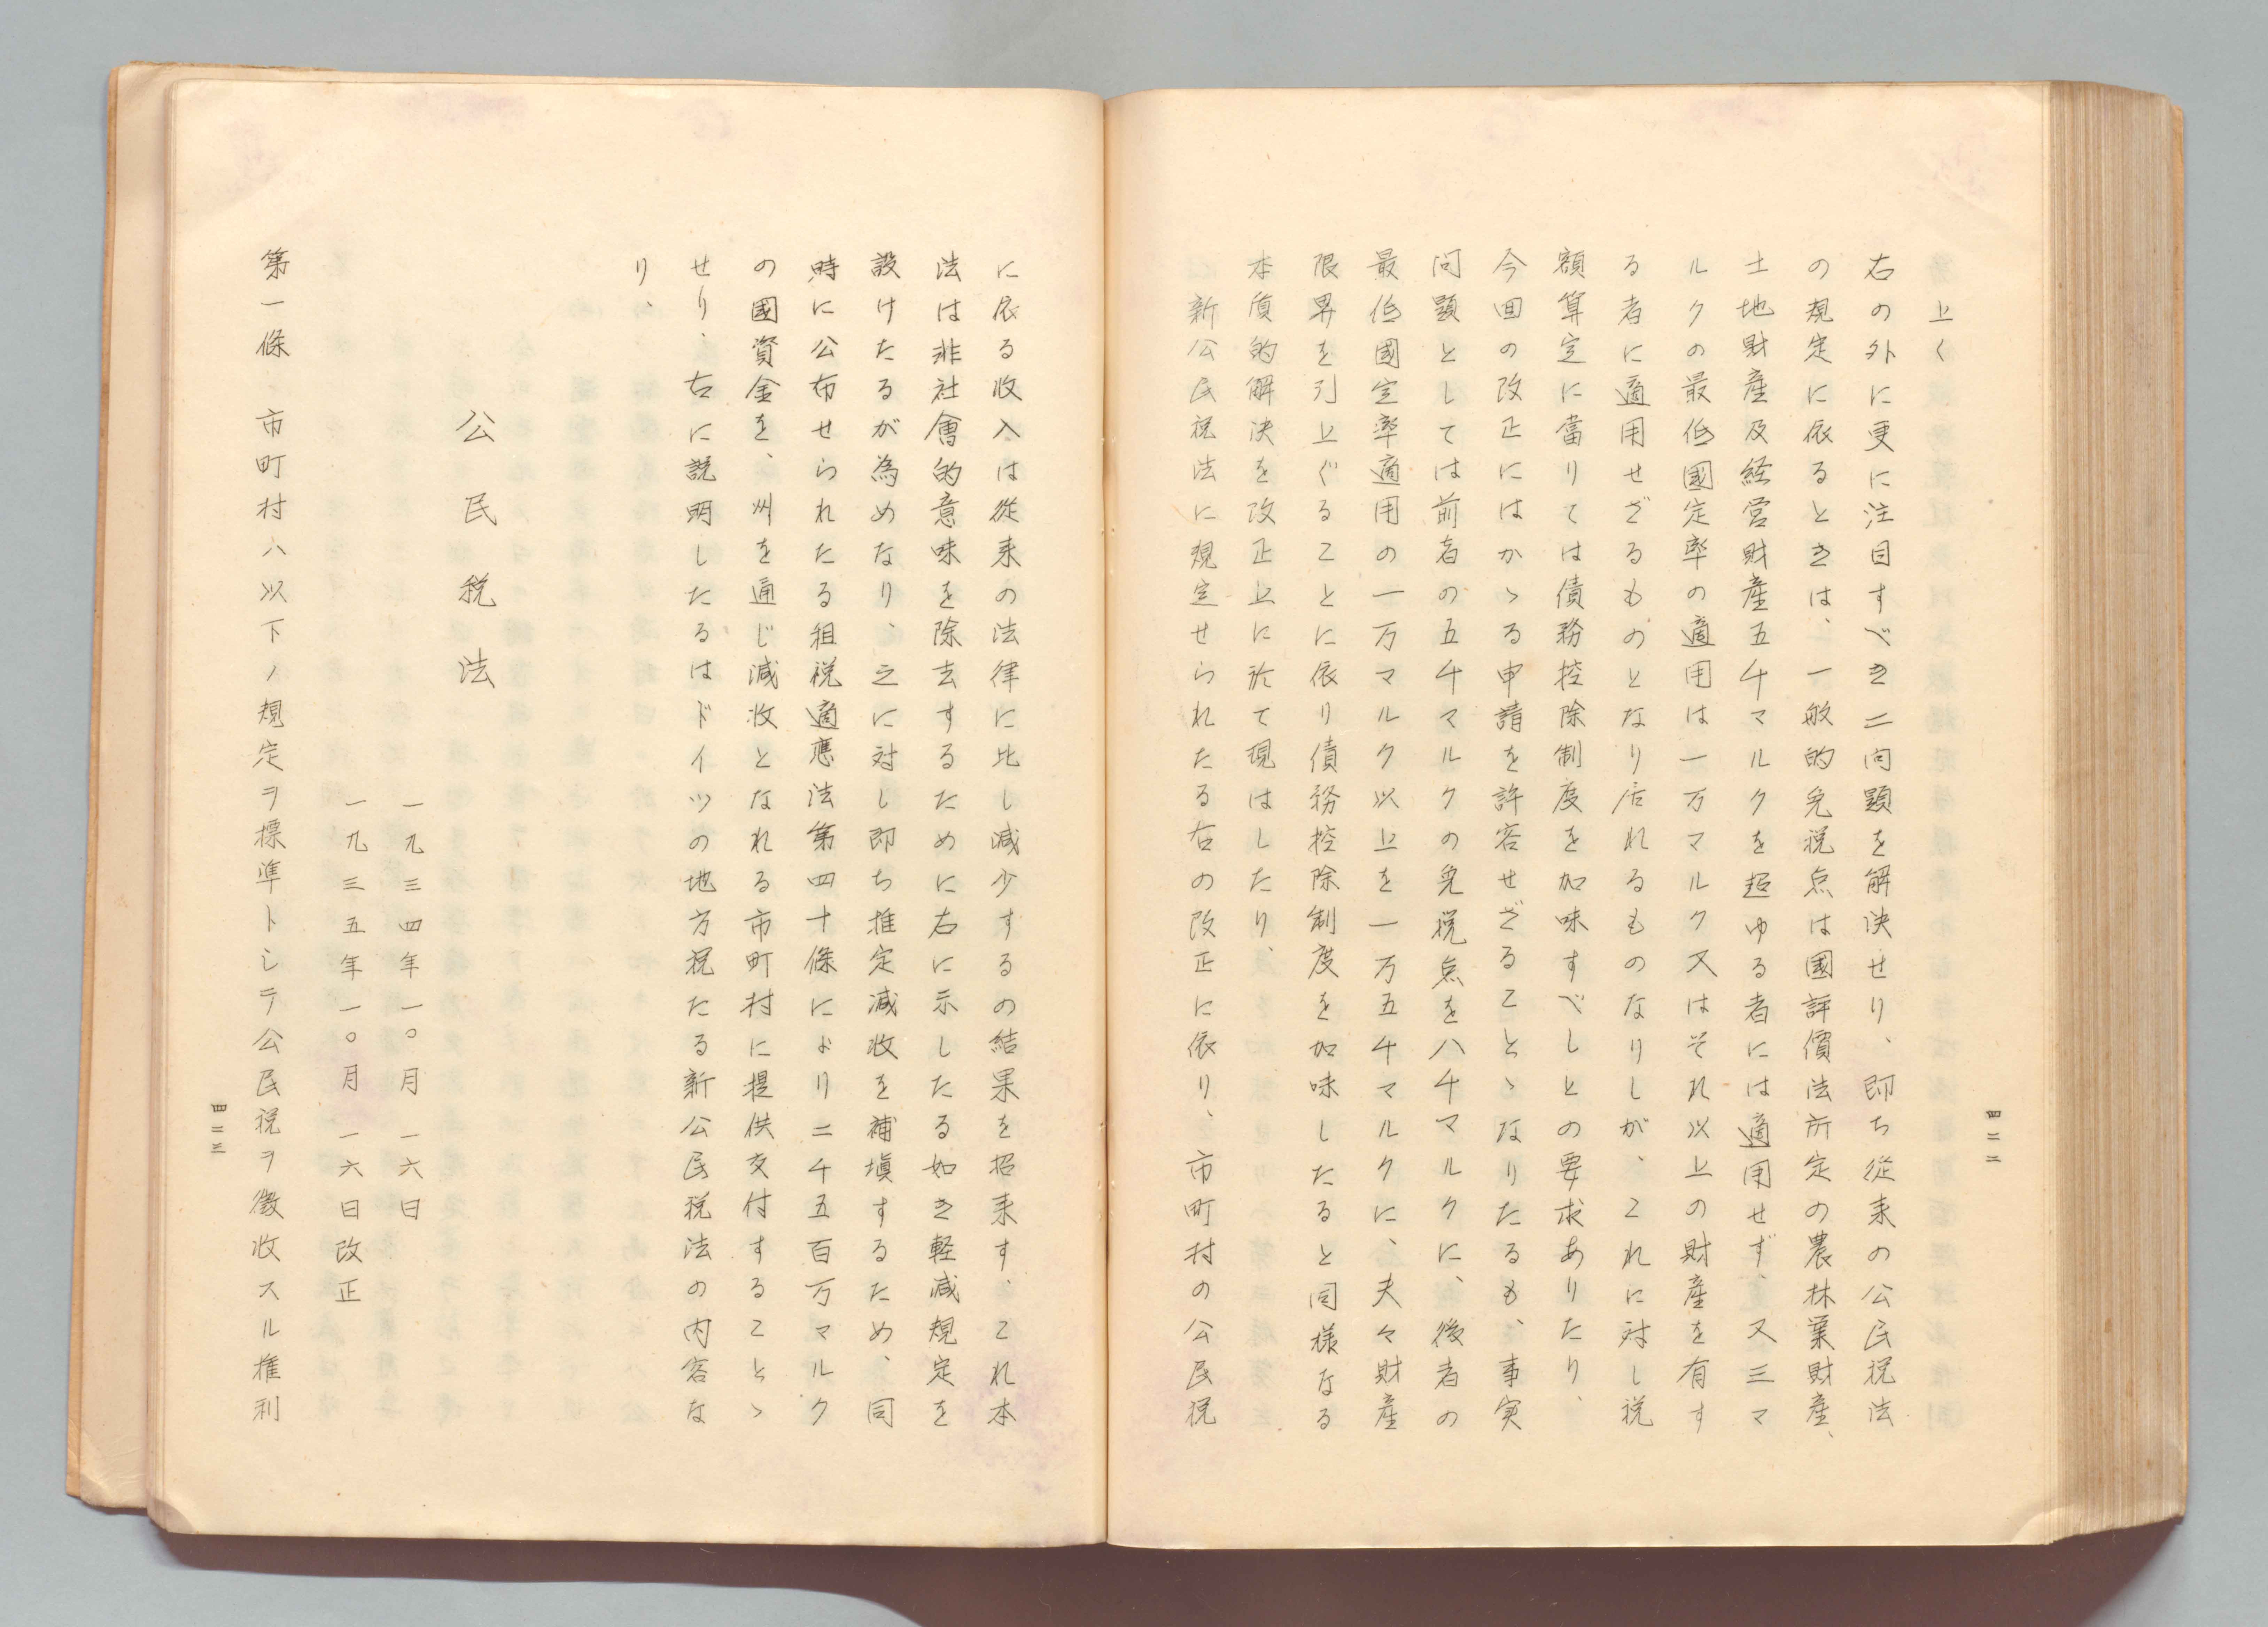 上く
右の外に更に注目すべき二問題を解決せり、即ち從来の公民税法
の規定に依るときは、一般的免税点は國評價法所定の農林業財産、
土地財産及経営財産五千マルクを超ゆる者には適用せず、又三マ
ルクの最低國定率の適用は一万マルク又はそれ以上の財産を有す
る者に適用せざるものとなり居れるものなりしが、これに対し税
額算定に當りては債務控除制度を加味すべしとの要求ありたり、
今回の改正にはかゝる申請を許容せざることゝなりたるも、事実
問題としては前者の五千マルクの免税点を八千マルクに、後者の
最低國定率適用の一万マルク以上を一万五千マルクに、夫々財産
限界を引上ぐることに依り債務控除制度を加味したると同様なる
本質的解決を改正上に於て現はしたり、
新公民税法に規定せられたる右の改正に依り、市町村の公民税
四二二
に依る收入は從来の法律に比し減少するの結果を招来す、これ本
法は非社會的意味を除去するために右に示したる如き軽減規定を
設けたるが為めなり、之に対し即ち推定減收を補塡するため、同
時に公布せられたる租税適應法第四十條により二千五百万マルク
の國資金を、州を通じ減收となれる市町村に提供交付することゝ
せり、右に説明したるはドイツの地方税たる新公民税法の内容な
り、
公民税法
一九三四年一〇月一六日
一九三五年一〇月一六日改正
第一條、市町村ハ以下ノ規定ヲ標準トシテ公民税ヲ徴收スル権利
四二三